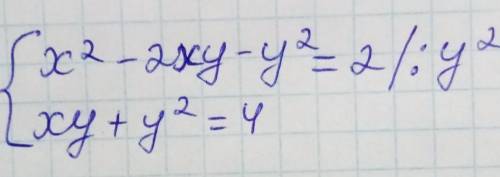 x² - 2xy - y² = 2 /: y²
xy + y² = 4